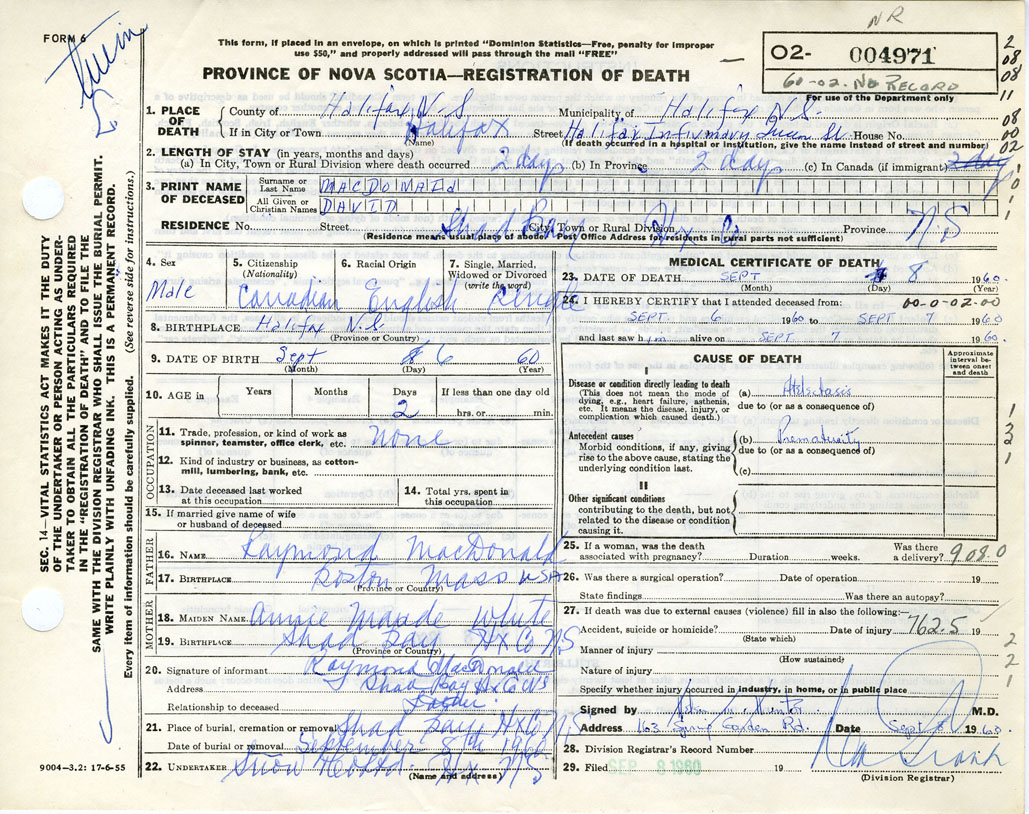 NR
FORM 6
Twin
2
This form, if placed in an envelope, on which is printed "Dominion Statistics—Free, penalty for improper
use $50," and properly addressed will pass through the mail "FREE"
PROVINCE OF NOVA SCOTIA—REGISTRATION OF DEATH
02- 004971
60-02. No RECORD
For use of the Department only
2
08
08
11
08
00
02
1. PLACE OF DEATH
County of Halifax N.S Municipality of Halifax N.S.
If in City or Town Halifax Street Halifax Infirmary Queen St. House No.
(Name) (If death occurred in a hospital or institution, give the name instead of street and number)
2. LENGTH OF STAY (in years, months and days)
(a) In City, Town or Rural Division where death occurred 2 days (b) In Province 2 days (c) In Canada (if immigrant)
3. PRINT NAME OF DECEASED
Surname or Last Name MACDONALD
All Given or Christian Names DAVID
RESIDENCE No. Street Shad Bay City, Town or Rural Division Hx Co Province N.S
(Residence means usual place of abode. Post Office Address for residents in rural parts not sufficient)
4. Sex Male
5. Citizenship (Nationality) Canadian
6. Racial Origin English
7. Single, Married, Widowed or Divorced (write the word) Single
8. BIRTHPLACE Halifax N.S.
(Province or Country)
9. DATE OF BIRTH Sept 6 60
(Month) (Day) (Year)
10. AGE in Years Months Days 2 If less than one day old hrs. or min.
OCCUPATION
11. Trade, profession, or kind of work as spinner, teamster, office clerk, etc. none
12. Kind of industry or business, as cotton-mill, lumbering, bank, etc.
13. Date deceased last worked at this occupation
14. Total yrs. spent in this occupation
15. If married give name of wife or husband of deceased
FATHER
16. NAME Raymond MacDonald
17. BIRTHPLACE Boston Mass USA
(Province or Country)
MOTHER
18. MAIDEN NAME Annie Maude White
19. BIRTHPLACE Shad Bay Hx Co N.S
(Province or Country)
20. Signature of informant Raymond MacDonald
Address Shad Bay Hx Co NS
Relationship to deceased Father
21. Place of burial, cremation or removal Shad Bay Hx Co N.S
Date of burial or removal September 8th 1960
22. UNDERTAKER Snow Hfx NS
(Name and address)
9004-3.2: 17-6-55
MEDICAL CERTIFICATE OF DEATH
23. DATE OF DEATH SEPT 8 1960
(Month) (Day) (Year)
24. I HEREBY CERTIFY that I attended deceased from: 00-0-02-00
SEPT 6 1960 to SEPT 7 1960
and last saw him alive on SEPT 7 1960
CAUSE OF DEATH
Approximate interval between onset and death
I
Disease or condition directly leading to death
(This does not mean the mode of dying, e.g., heart failure, asthenia, etc. It means the disease, injury, or complication which caused death.)
(a) Atelectasis
due to (or as a consequence of)
Antecedent causes
Morbid conditions, if any, giving rise to the above cause, stating the underlying condition last.
(b) Prematurity
due to (or as a consequence of)
(c)
II
Other significant conditions
contributing to the death, but not related to the disease or condition causing it.
25. If a woman, was the death associated with pregnancy? Duration weeks. Was there a delivery? 908.0
26. Was there a surgical operation? Date of operation 19
State findings Was there an autopsy?
27. If death was due to external causes (violence) fill in also the following:—
Accident, suicide or homicide? Date of injury 762.5 19
(State which)
Manner of injury
(How sustained)
Nature of injury
Specify whether injury occurred in industry, in home, or in public place
Signed by M.D.
Address 163 Spring Garden Rd. Date Sept 8 1960.
28. Division Registrar's Record Number
29. Filed SEP 8 1960 19
(Division Registrar)
SEC. 14—VITAL STATISTICS ACT MAKES IT THE DUTY
OF THE UNDERTAKER OR PERSON ACTING AS UNDER-
TAKER TO OBTAIN ALL THE PARTICULARS REQUIRED
IN THE "REGISTRATION OF DEATH" AND TO FILE THE
SAME WITH THE DIVISION REGISTRAR WHO SHALL ISSUE THE BURIAL PERMIT.
WRITE PLAINLY WITH UNFADING INK. THIS IS A PERMANENT RECORD.
Every item of information should be carefully supplied. (See reverse side for instructions.)